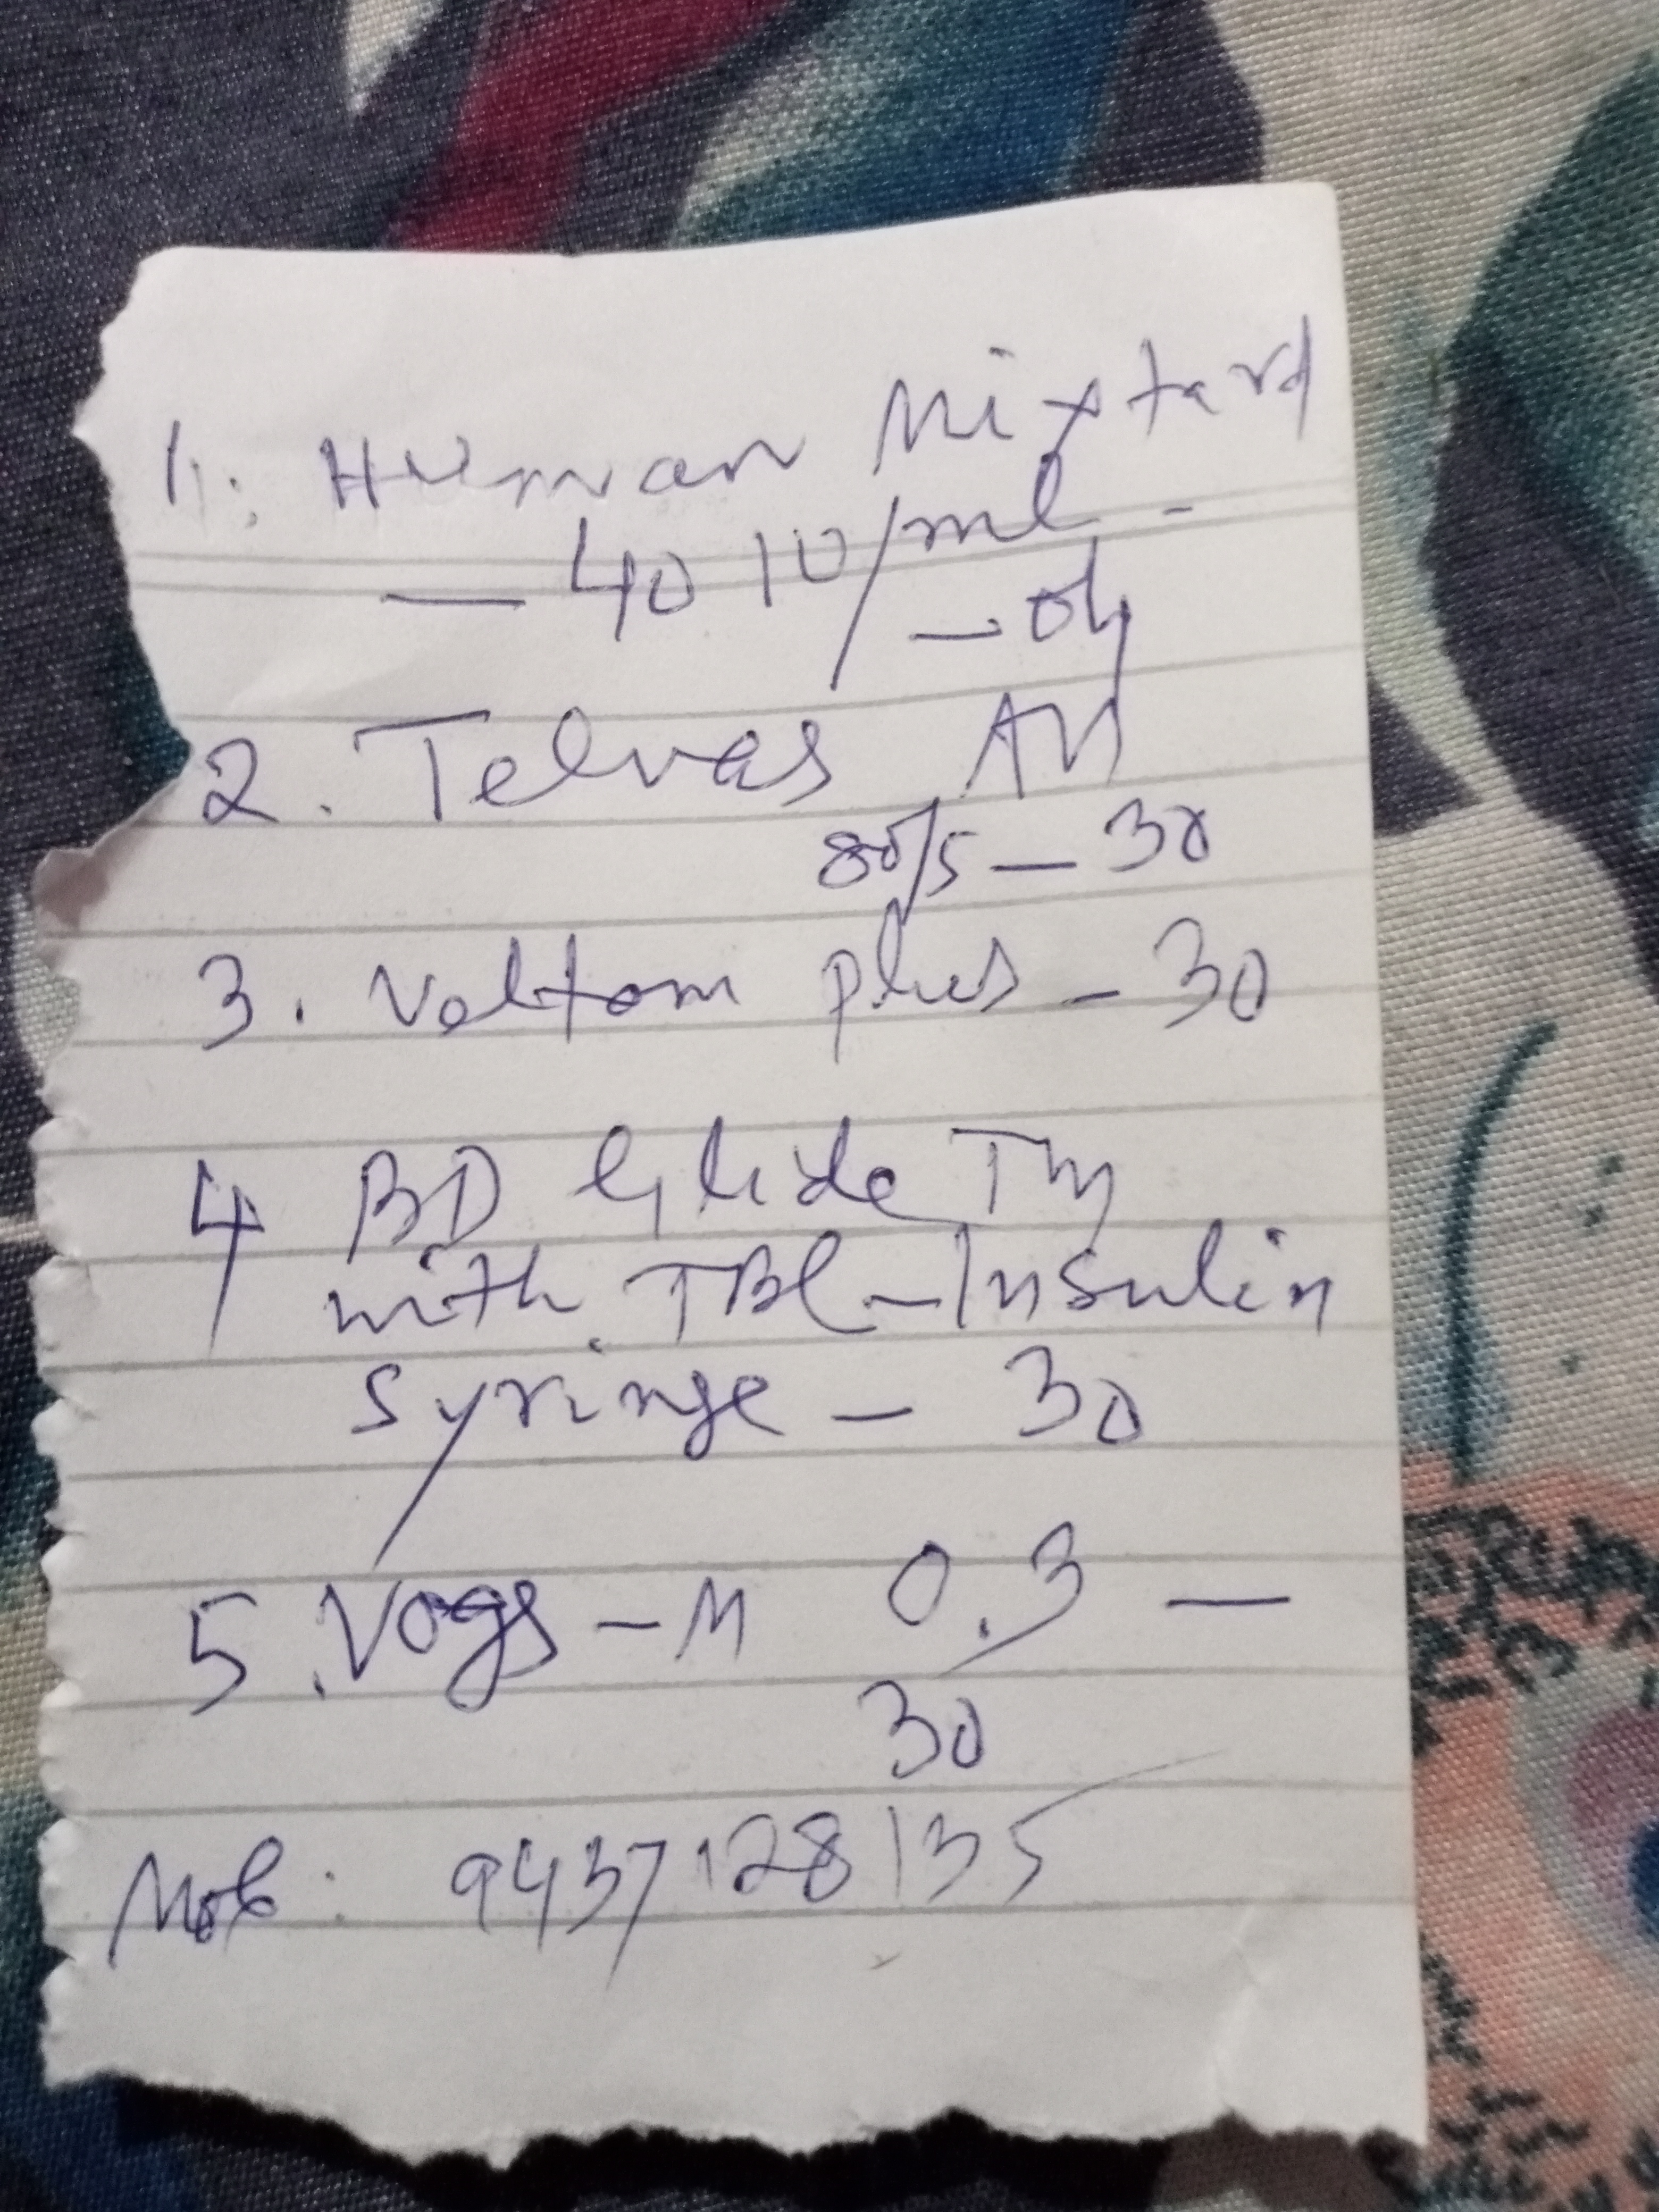 1. Human Mixtard
— 40 IU/ml -
— 04
2. Telvas AM
80/5 — 30
3. Voltom plus - 30
4 BD Glide TM
with TBL - Insulin
syringe — 30
5. Vogs - M 0.3 —
30
Mob: 9437128135